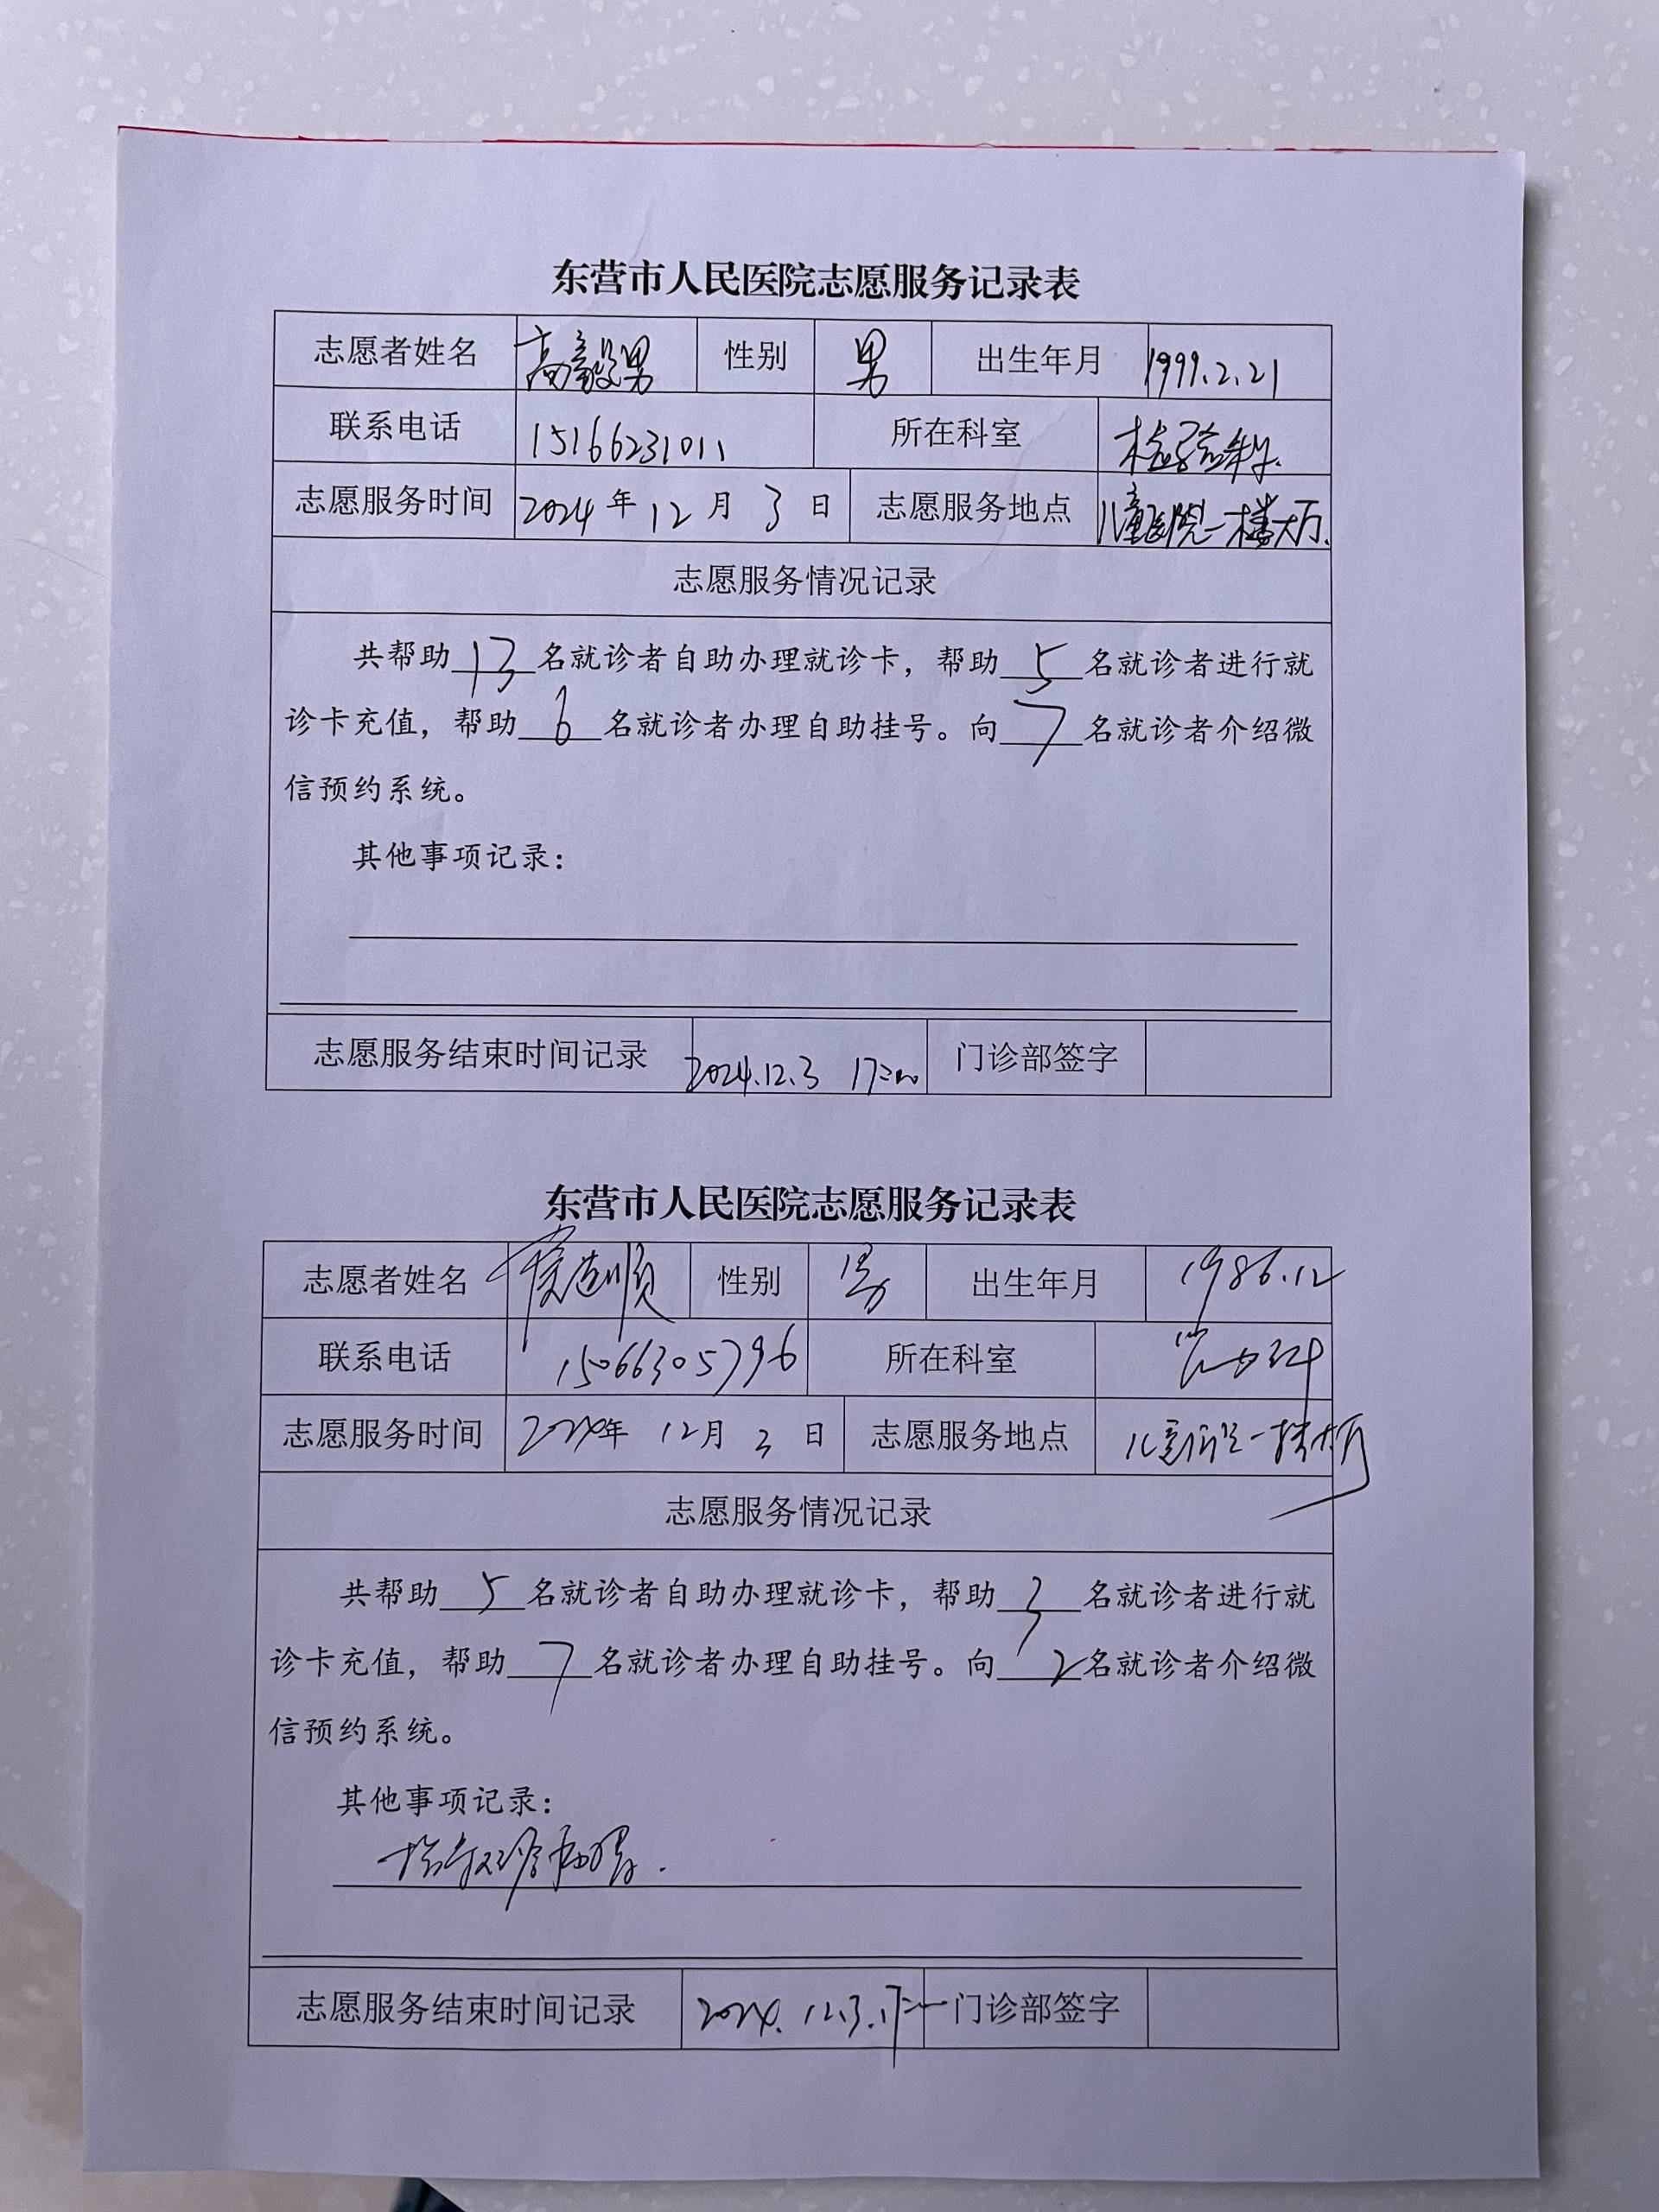 东营市人民医院志愿服务记录表
志愿者姓名 高毅男 性别 男 出生年月 1999.2.21
联系电话 15166231011 所在科室 检验科.
志愿服务时间 2024年12月3日 志愿服务地点 儿童医院一楼大厅.
志愿服务情况记录
共帮助13名就诊者自助办理就诊卡，帮助5名就诊者进行就
诊卡充值，帮助6名就诊者办理自助挂号。向7名就诊者介绍微
信预约系统。
其他事项记录：
志愿服务结束时间记录 2024.12.3 17:00 门诊部签字
东营市人民医院志愿服务记录表
志愿者姓名 性别 男 出生年月 1986.12
联系电话 15066305796 所在科室
志愿服务时间 2024年12月3日 志愿服务地点 儿童医院一楼大厅
志愿服务情况记录
共帮助5名就诊者自助办理就诊卡，帮助3名就诊者进行就
诊卡充值，帮助7名就诊者办理自助挂号。向2名就诊者介绍微
信预约系统。
其他事项记录：
志愿服务结束时间记录 2024.12.3.17: 门诊部签字